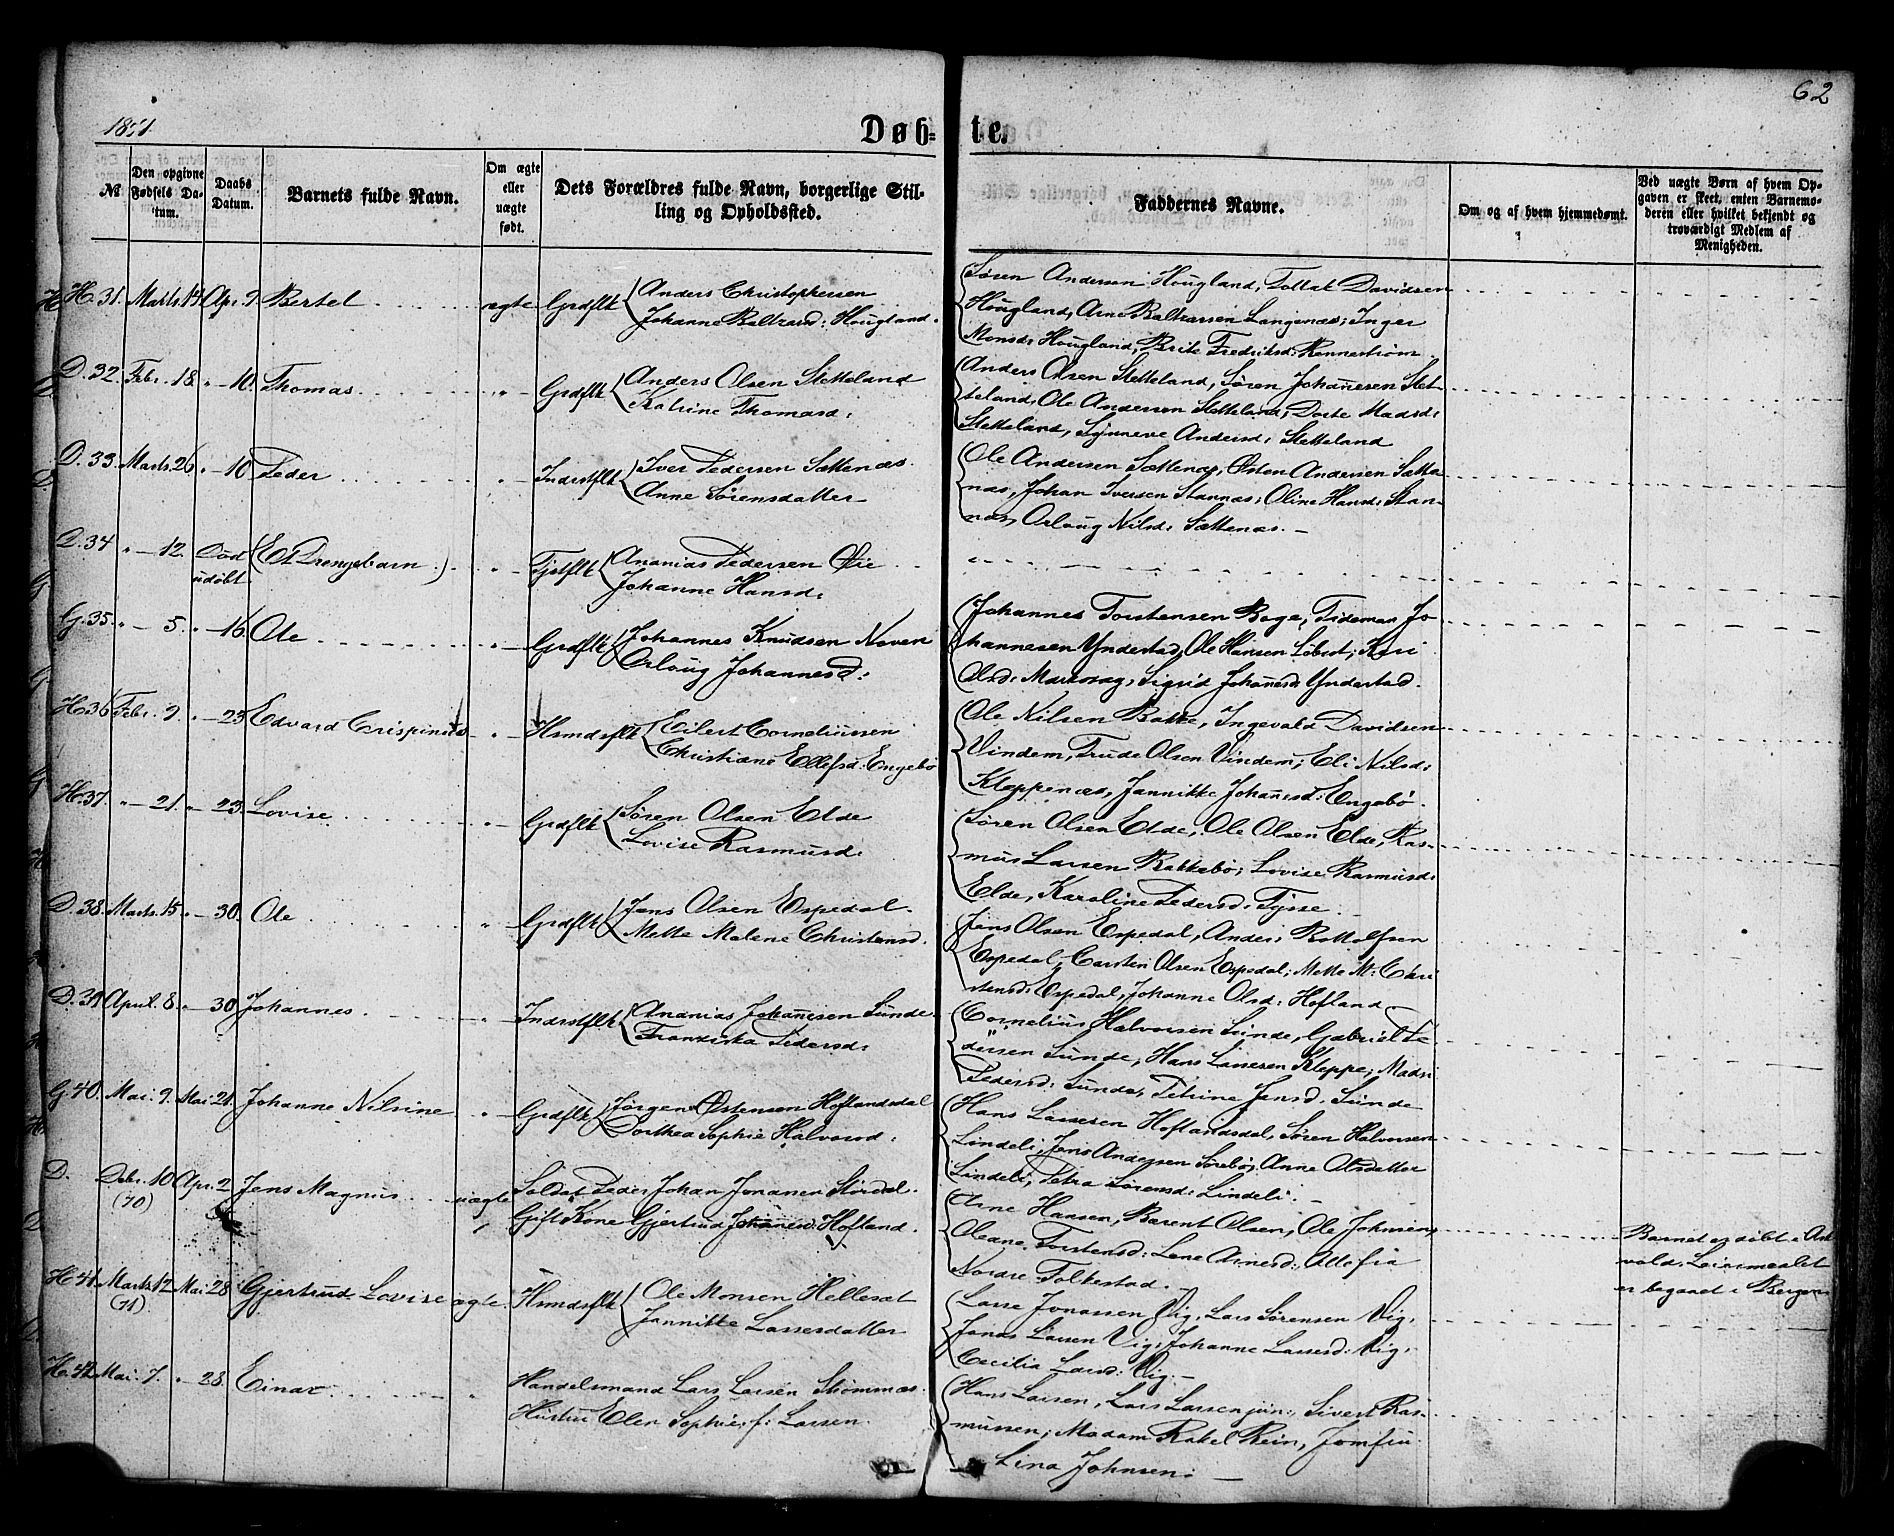 62
1871.
Døb-
te.
№
Den opgivne Fødsels Da-
tum.
Daabs
Datum.
Barnets fulde Navn.
Om ægte
eller
uægte
født.
Dets Forældres fulde Navn, borgerlige Stil-
ling og Opholdssted.
Faddernes Navne.
Om og af hvem hjemmedøbt.
Ved uægte Børn af hvem Op-
gaven er skeet, enten Barnemo-
deren eller hvilket bekjendt og
troværdigt Medlem af
Menigheden.
H. 31. Marts 14 Apr. 9. Bertel ægte Grdflk Anders Christophersen
Johanne Baltzard: Hougland.
Søren Andersen Hougland, Tollak Davidsen
Hougland, Arne Baltzarsen Langenæs; Inger
Monsd: Hougland, Brite Fredriksd: Rennestrøm
D. 32. Febr. 18. " - 10. Thomas " Grdflk Anders Olsen Sletteland
Katrine Thomasd:
Anders Olsen Sletteland, Søren Johannesen Slet-
teland, Ole Andersen Sletteland; Dorte Madsd:
Sletteland, Synneve Andersd: Sletteland
D. 33. Marts 26. " - 10 Peder " Inderstflk Iver Pedersen Sættenæs.
Anne Sørensdatter
Ole Andersen Sættenæs, Østen Andersen Sætte-
næs, Johan Iversen Stannæs; Oline Hansd: Stan-
næs, Orloug Nilsd: Sættenæs. -
D. 34 " - 12. Død
udøbt (Et Drengebarn.) " Tjstflk Ananias Pedersen Øie
Johanne Hansd:
G. 35. " - 5. " - 16. Ole " Grdflk Johannes Knudsen Naven
Orloug Johannesd:
Johannes Torstensen Boge, Tideman Jo-
hannesen Yndestad, Ole Hansen ; Kari
Olsd: , Sigrid Johannesd: Yndestad.
H. 36 Febr. 9. " - 23 Edvard Crispinus " Hsmdsflk Eilert Corneliussen
Christiane Ellefsd: Engebø
Ole Nilsen Bakke, Ingevald Davidsen
Vindem, Trude Olsen Vindem; Eli Nilsd:
Kleppenæs, Jannikke Johannesd: Engebø.
H. 37. " - 21. " - 23. Lovise " Grdflk Søren Olsen Elde
Lovise Rasmusd:
Søren Olsen Elde, Ole Olsen Elde, Ras-
mus Larsen Bakkebø; Lovise Rasmusd:
Elde, Karoline Pedersd: Tysse.
D. 38. Marts. 15. " - 30. Ole " Grdflk Jens Olsen Espedal.
Mette Malene Christensd.
Jens Olsen Espedal, Anders Bottolfsen
Espedal, Carsten Olsen Espedal; Mette M: Chri-
stensd: Espedal, Johanne Olsd: Hofland
D. 39 April. 8. " - 30 Johannes " Inderstflk Ananias Johannesen Sunde.
Franziska Pedersd:
Cornelius Halvorsen Sunde, Gabriel Pe-
dersen Sunde, Hans Lassesen Kleppe; 
Pedersd: Sunde, Petrine Jensd: Sunde
G. 40. Mai. 9. Mai. 21. Johanne Nilsine " Grdflk Jørgen Østensen Hoflandsdal
Dorthea Sophie Halvorsd:
Hans Lassesen Hoflandsdal, Søren Halvorsen
Lindeli, Jens Andersen Sørebø; Anne Olsdatter
Lindeli, Petra Sørensd: Lindeli. -
D. Debr. 10 Apr. 2
(70) Jens Magnus uægte Soldat Peder Johan Jonasen Størdal.
Gift Kone Gjertrud Johanesd: Hofland.
Arne Hansen, Barent Olsen, Ole Johnsen;
Oleane Torstensd: Lene Arnesd:, 
Nordre Folkestad. -
Barnet er døbt i Ask-
vold; Leiermaalet
er begaaet i Bergen
H. 41. Marts. 12 Mai. 28
(71) Gjertrud Lovise ægte Hsmdsflk Ole Monsen Hellesæt
Jannikke Lassesdatter
Lasse Jonassen Vig, Lars Sørensen Vig,
Jonas Lassen Vig; Johanne Lassesd: Vig,
Cecilia Larsd: Vig. -
H. 42 Mai. 7. " - 28. Einar " Handelsmand Lars Larsen Strømmæs.
Hustru Elen Sophie, f: Larsen.
Hans Larsen, Lars Larsen jun:, Sivert Ras-
mussen; Madam Rakel Rein, Jomfru
Lina Johnsen: -